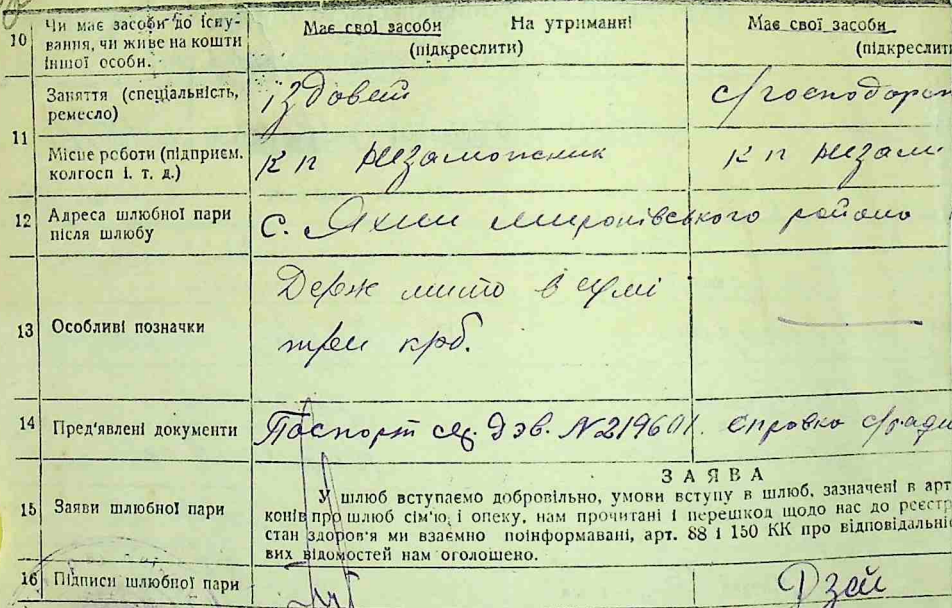 10 Чи має засоби до існування, чи живе на кошти іншої особи. Має свої засоби На утриманні (підкреслити) Має свої засоби (підкреслити
11 Заняття (спеціальність, ремесло) їздовей с/господорст
Місце роботи (підприєм. колгосп і. т. д.) к п незаможник к п незам
12 Адреса шлюбної пари після шлюбу с. Яхни миронівського району
13 Особливі позначки Держ мито в сумі
три крб.
14 Пред'явлені документи Паспорт N219601. справка с/ради
ЗАЯВА
15 Заяви шлюбної пари У шлюб вступаємо добровільно, умови вступу в шлюб, зазначені в арт
конів про шлюб сім'ю, і опеку, нам прочитані і перешкод щодо нас до реєстр
стан здоров'я ми взаємно поінформавані, арт. 88 і 150 КК про відповідальніс
вих відомостей нам оголошено.
16 Підписи шлюбної пари